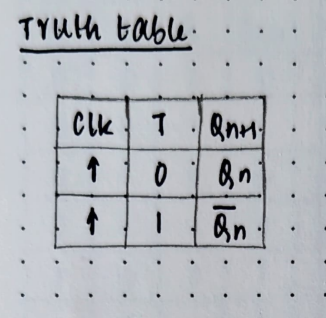 Truth table.
Clk T Qn+1
↑ 0 Qn
↑ 1 Q̅n